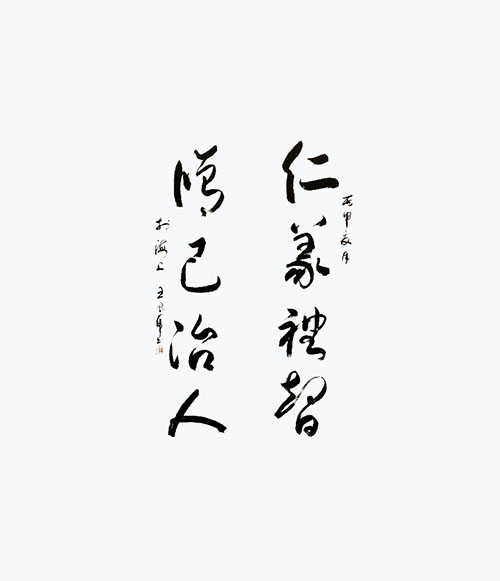 仁義禮智
丙申夏月
修己治人
於海上 王